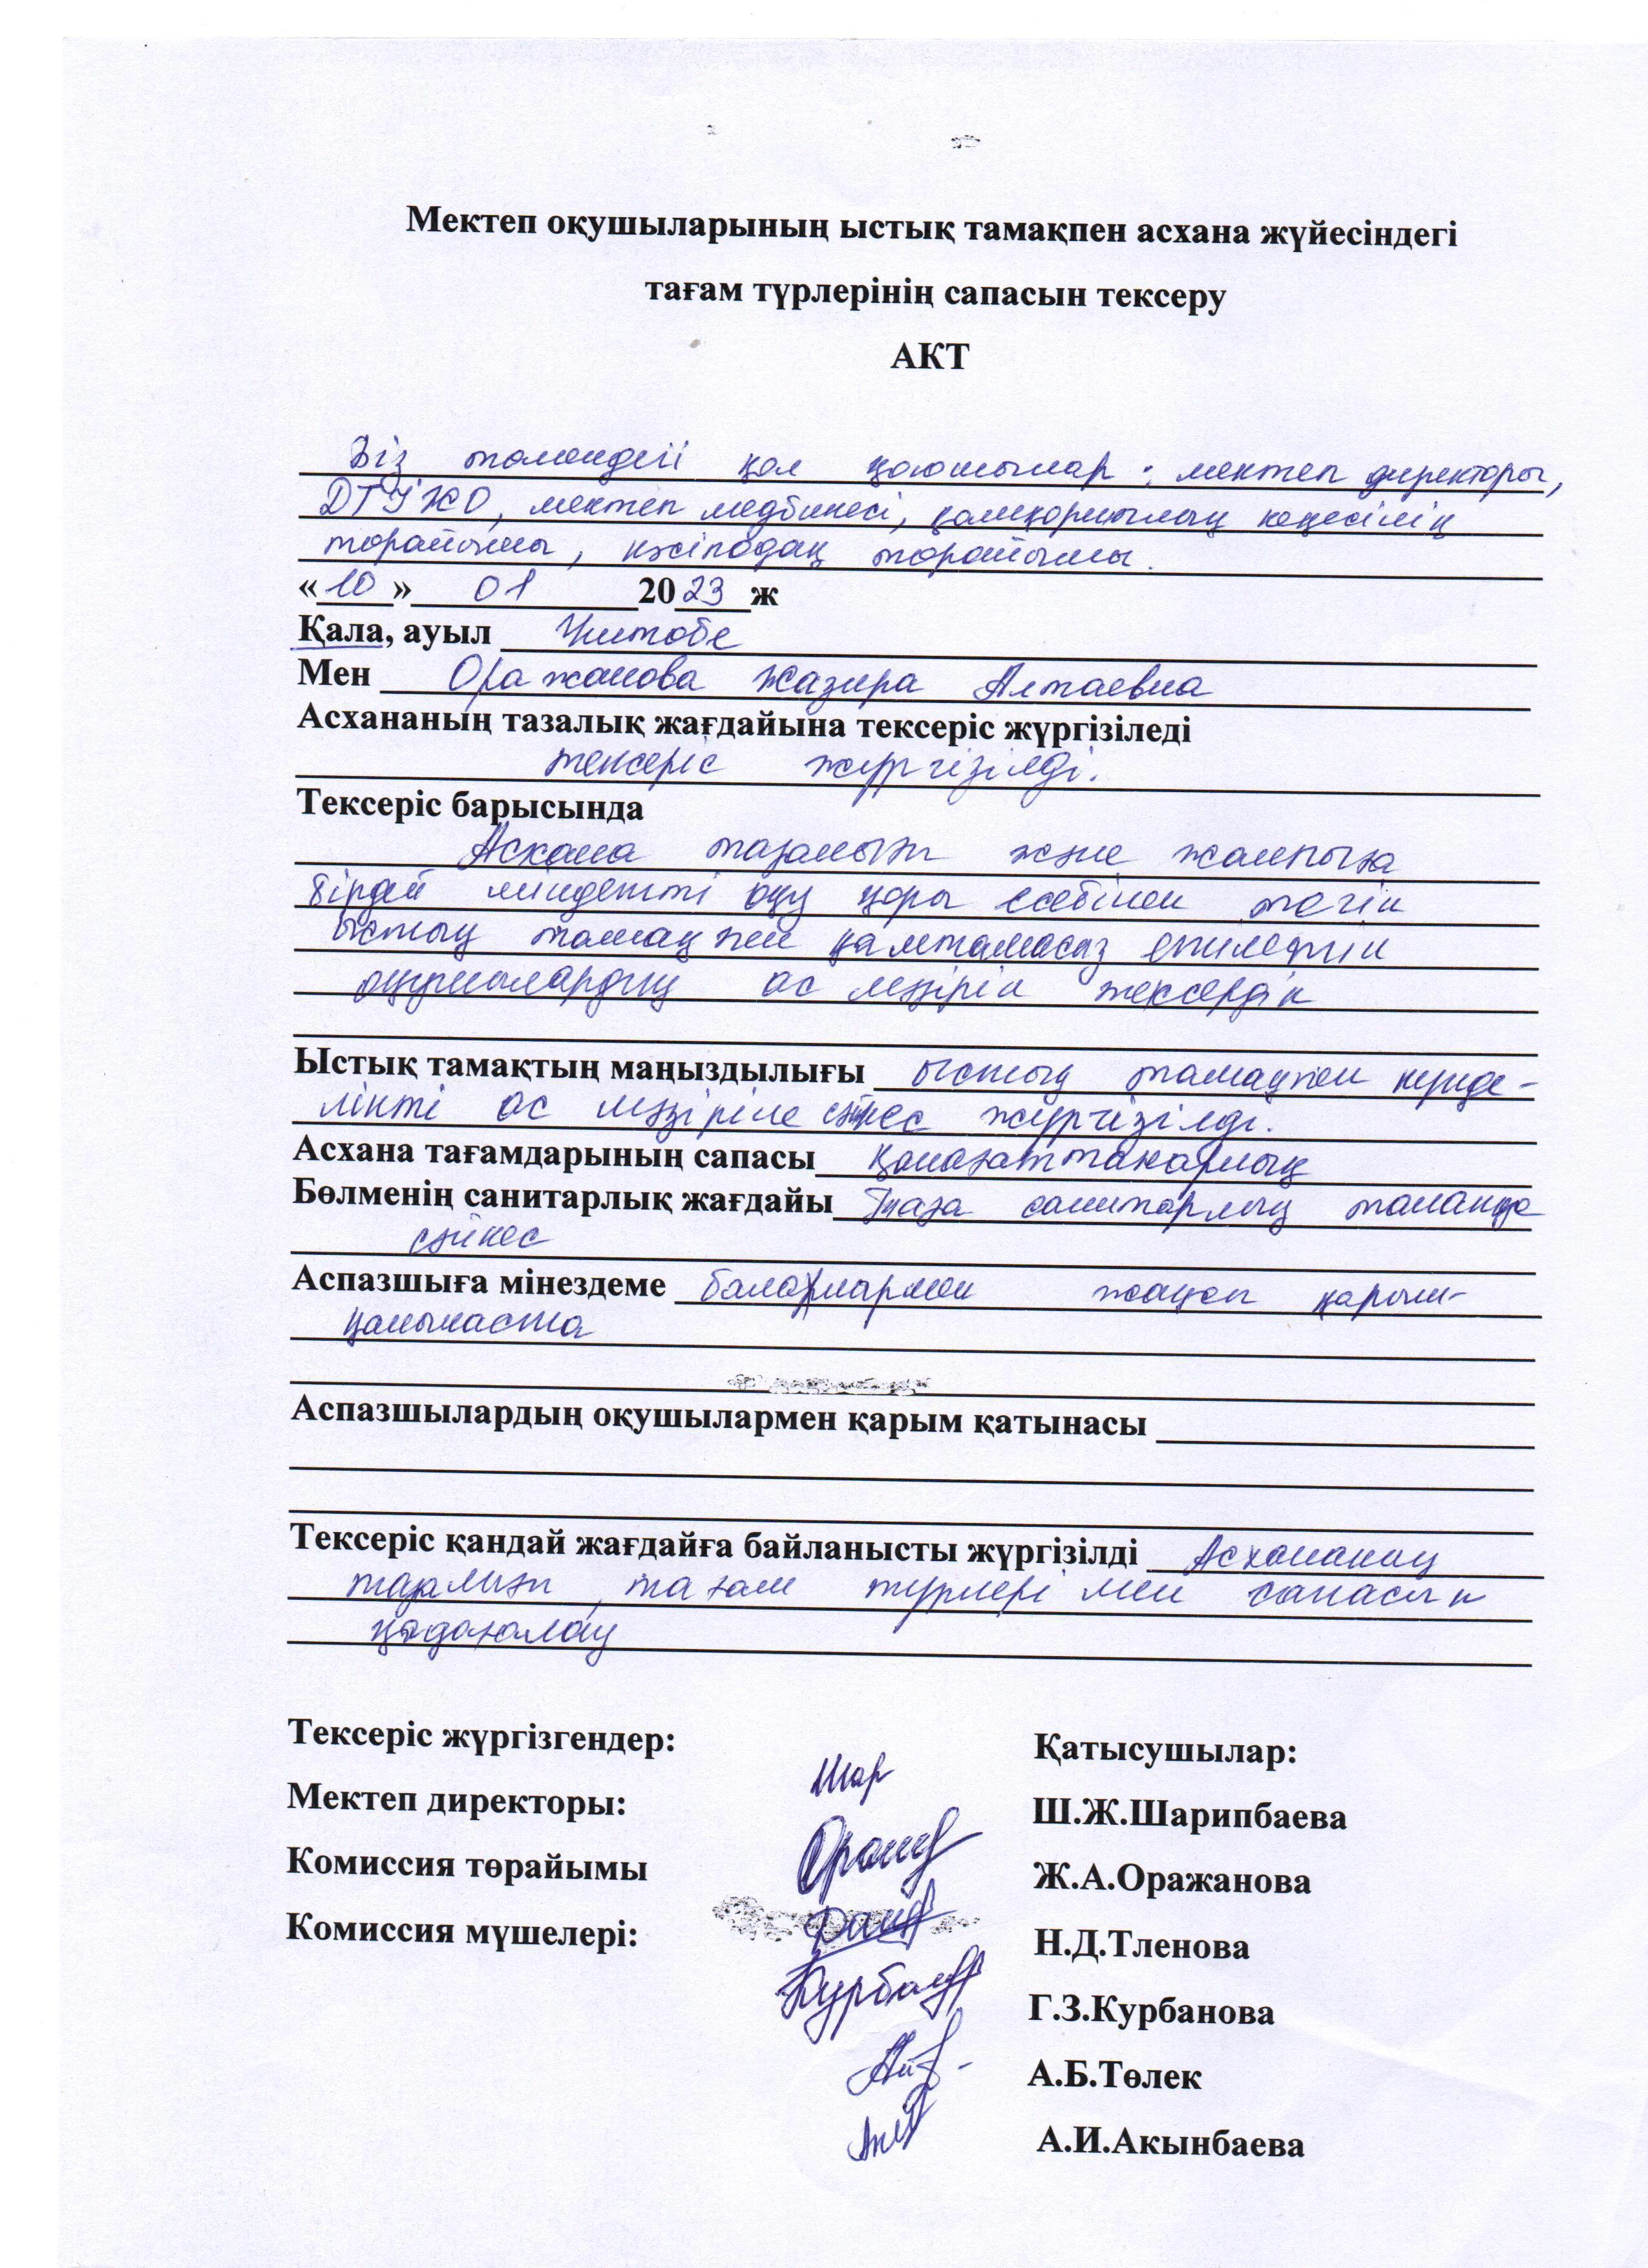 Мектеп оқушыларының ыстық тамақпен асхана жүйесіндегі
тағам түрлерінің сапасын тексеру
АКТ
Біз төмендегі қол қоюшылар: мектеп директоры,
ДТІЖО, мектеп медбикесі, қамқоршылық кеңесінің
төрайымы, кәсіподақ төрайымы.
«10» 01 2023 ж
Қала, ауыл Үштобе
Мен Оражанова Жазира Алтаевна
Асхананың тазалық жағдайына тексеріс жүргізіледі
тексеріс жүргізілді.
Тексеріс барысында
Асхана тазалығы және жалпыға
бірдей міндетті оқу қоры есебінен тегін
ыстық тамақпен қамтамасыз етілетін
оқушылардың ас мәзірін тексердік
Ыстық тамақтың маңыздылығы ыстық тамақпен күнде-
лікті ас мәзіріне сәйкес жүргізілді.
Асхана тағамдарының сапасы қанағаттанарлық
Бөлменің санитарлық жағдайы Таза санитарлық талапқа
сәйкес
Аспазшыға мінездеме балалармен жақсы қарым-
қатынаста
Аспазшылардың оқушылармен қарым қатынасы
Тексеріс қандай жағдайға байланысты жүргізілді Асхананың
тазалығы, тағам түрлері мен сапасын
қадағалау
Тексеріс жүргізгендер: Қатысушылар:
Мектеп директоры: Шар Ш.Ж.Шарипбаева
Комиссия төрайымы Ж.А.Оражанова
Комиссия мүшелері: Н.Д.Тленова
Г.З.Курбанова
А.Б.Төлек
А.И.Акынбаева